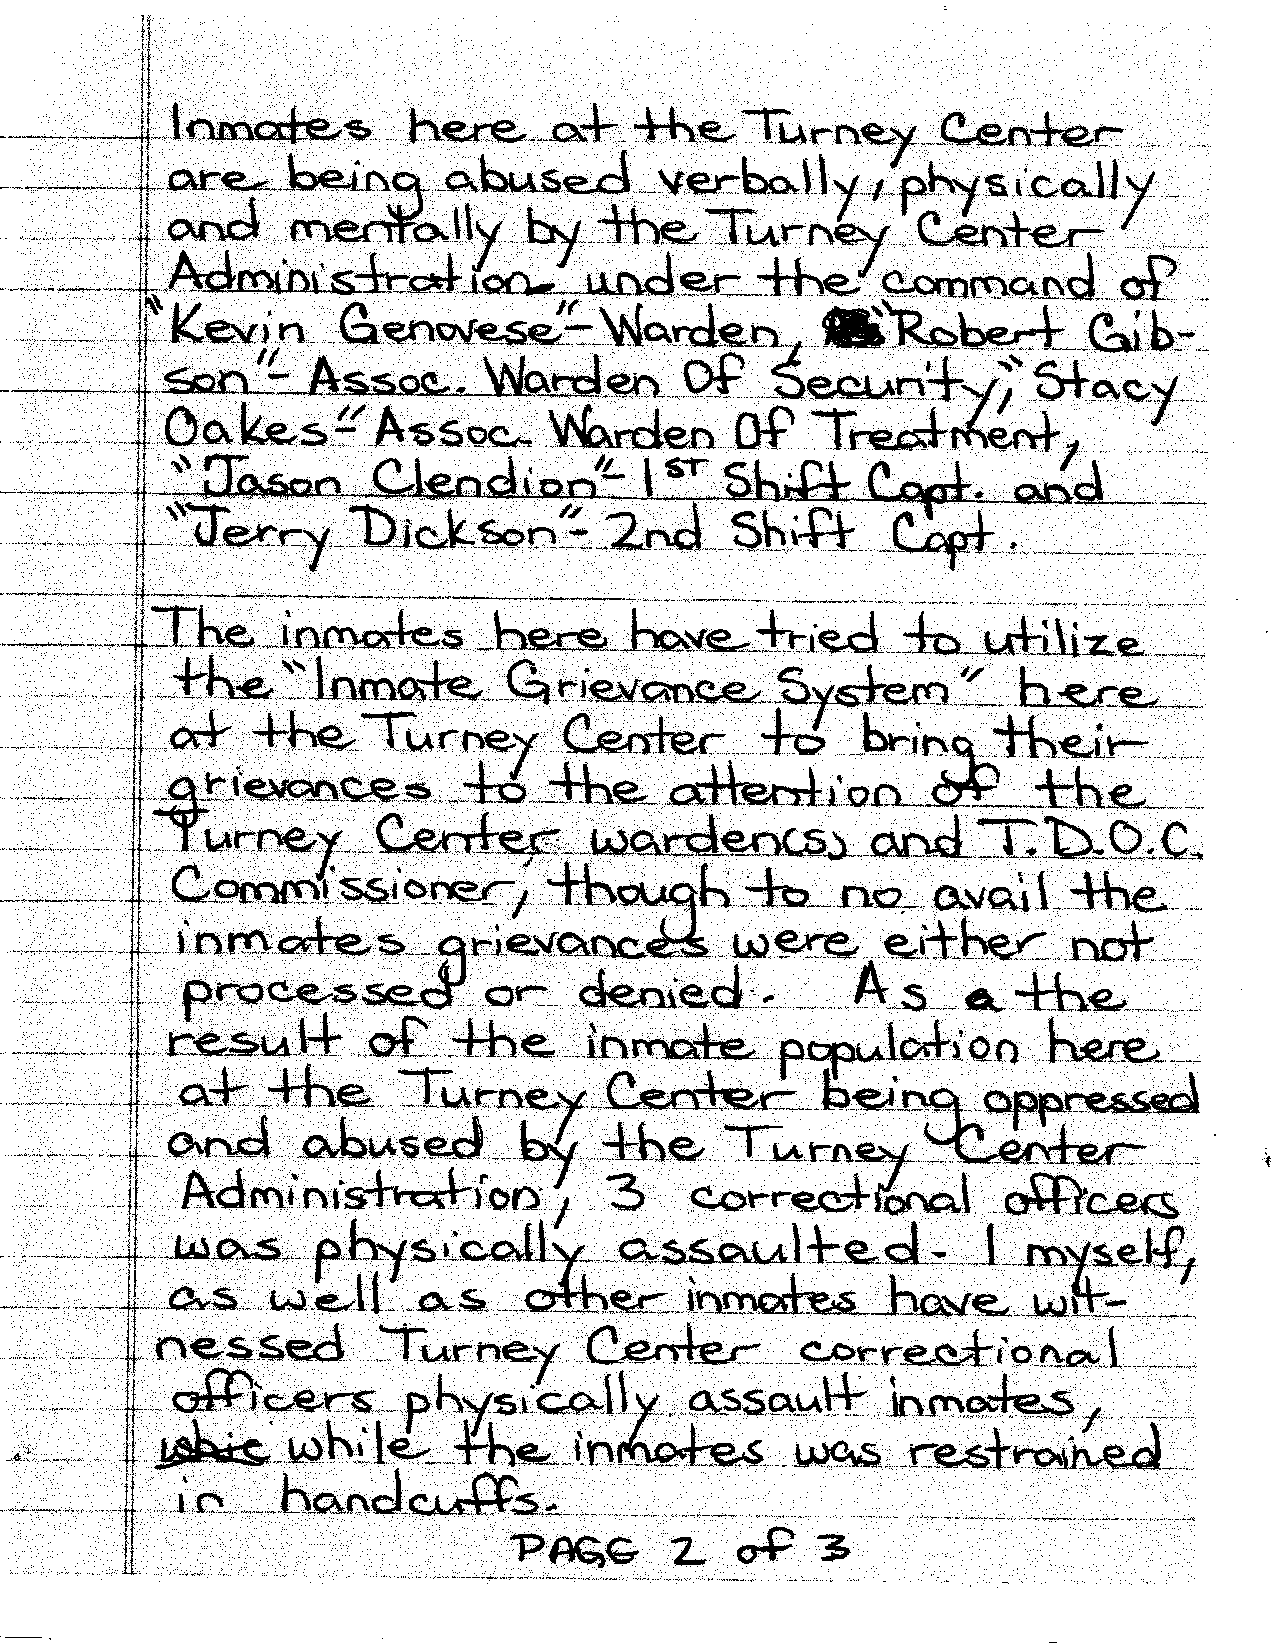 Inmates here at the Turney Center
are being abused verbally, physically
and mentally by the Turney Center
Administration under the command of
"Kevin Genovese"- Warden, "Robert Gib-
son"- Assoc. Warden Of Security, "Stacy
Oakes"- Assoc. Warden Of Treatment,
"Jason Clendion"- 1ST Shift Capt. and
"Jerry Dickson"- 2nd Shift Capt.
The inmates here have tried to utilize
the "Inmate Grievance System" here
at the Turney Center to bring their
grievances to the attention of the
Turney Center warden(s) and T.D.O.C.
Commissioner, though to no avail the
inmates grievances were either not
processed or denied. As a the
result of the inmate population here
at the Turney Center being oppressed
and abused by the Turney Center
Administration, 3 correctional officers
was physically assaulted. I myself,
as well as other inmates have wit-
nessed Turney Center correctional
officers physically assault inmates,
while the inmates was restrained
in handcuffs.
PAGE 2 of 3